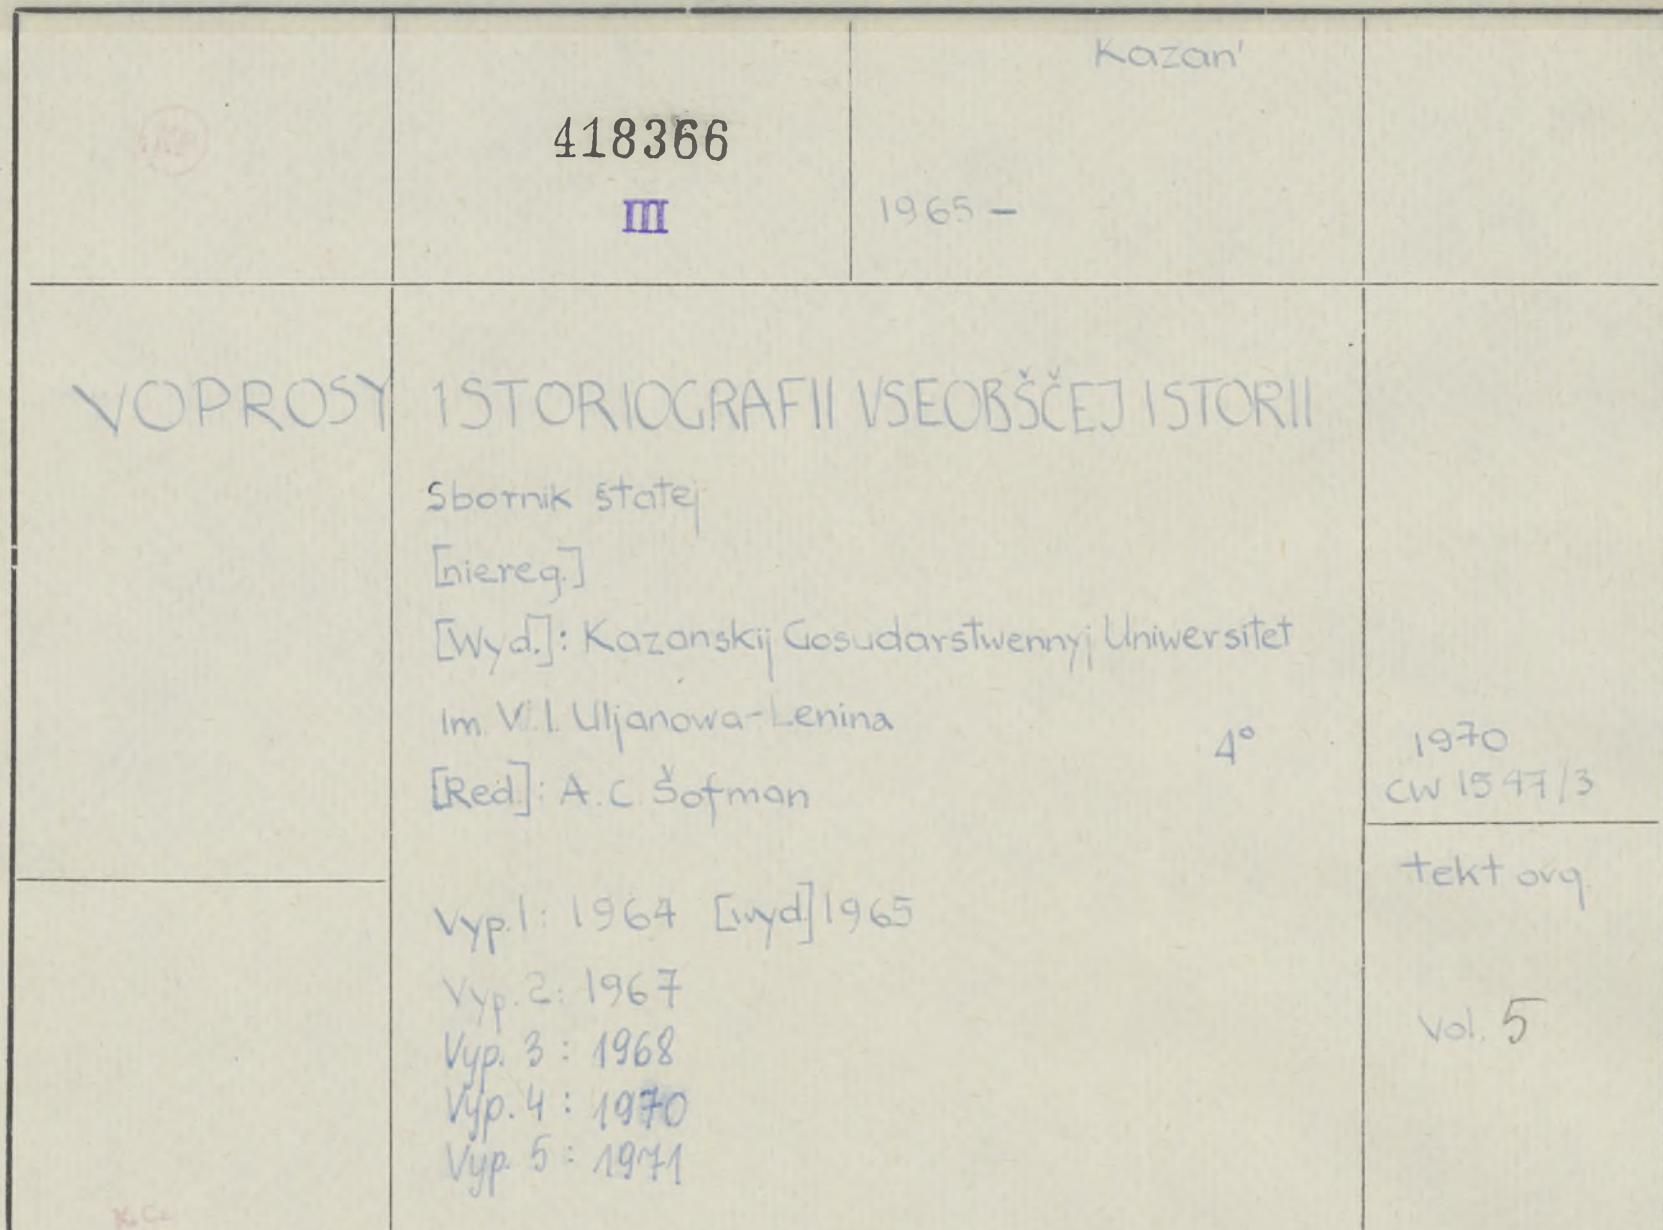 Kazan'
418366
III
1965 -
VOPROSY ISTORIOGRAFII VSEOBŠČEJ ISTORII
Sbornik statej
[niereg.]
[Wyd.]: Kazanskij Gosudarstwennyj Uniwersitet
im. V. I. Uljanowa-Lenina
4°
[Red.]: A. C. Šofman
1970
CW 1547/3
Vyp. 1: 1964 [wyd] 1965
Vyp. 2: 1967
Vyp. 3: 1968
Vyp. 4: 1970
Vyp. 5: 1971
tekt org
Vol. 5